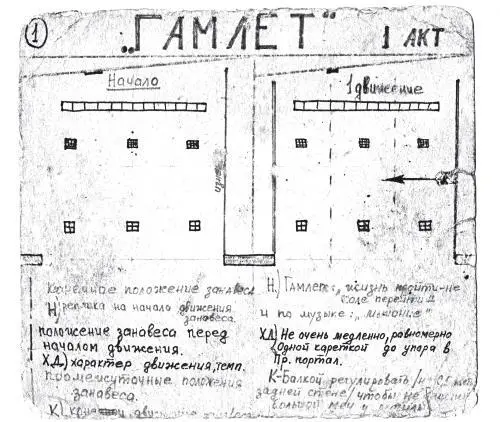 1
„ГАМЛЕТ"
1 АКТ
Начало
1 движение
конечное положение занавеса
Н) реплика на начало движения
занавеса.
положение занавеса перед
началом движения.
Х.Д.) характер движения, темп.
промежуточные положения
занавеса.
К)
Н.) Гамлет: „жизнь пройти-не
поле перейти"
и по музыке:
Х.Д.) Не очень медленно, равномерно
Одной кареткой до упора в
Пр. портал.
К-Балкой регулировать
задней стене, чтобы не
большой